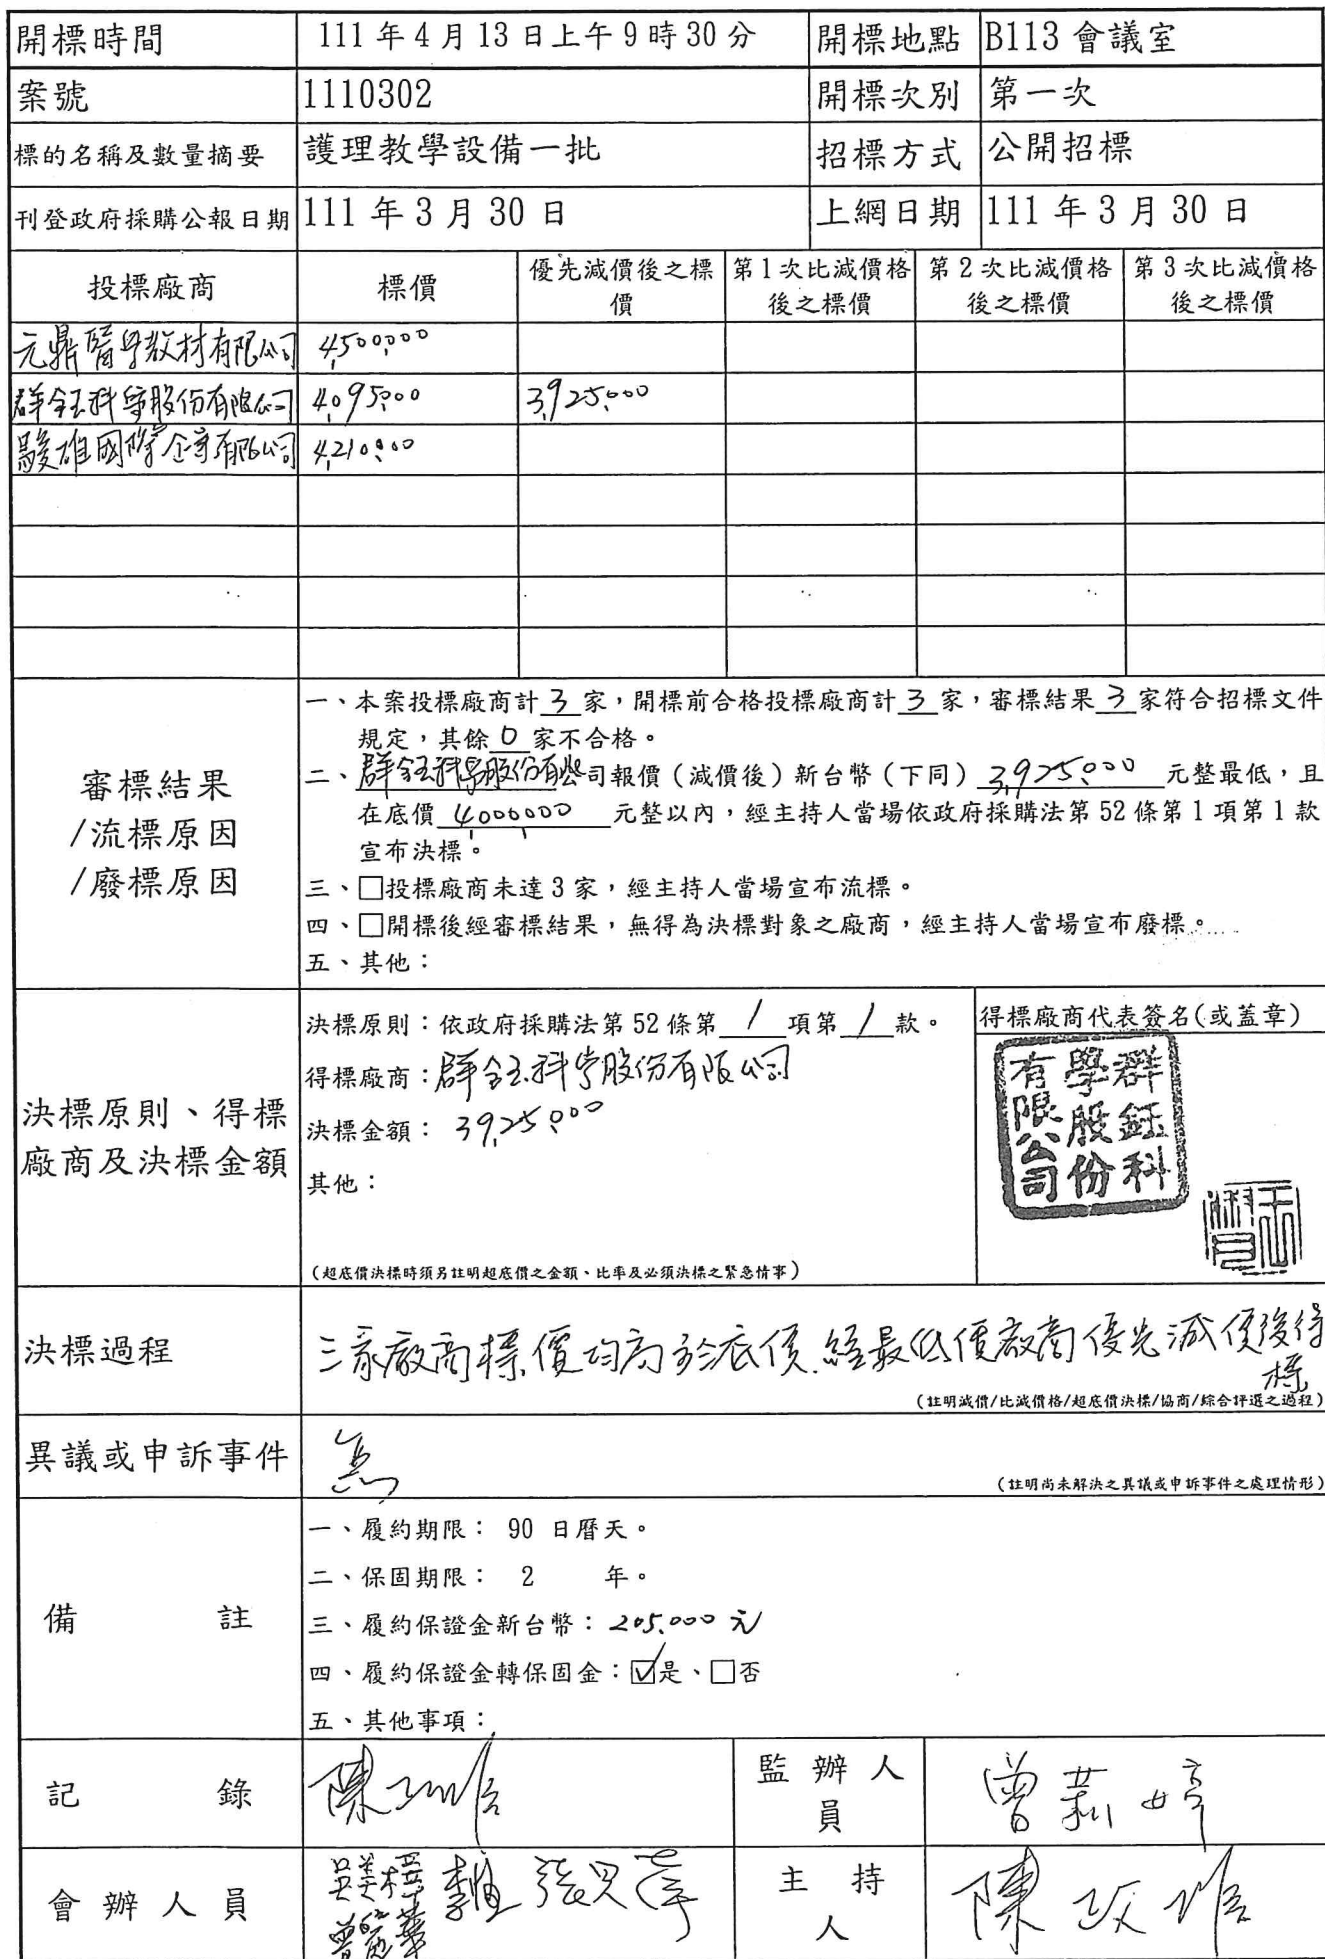 開標時間 111 年 4 月 13 日上午 9 時 30 分 開標地點 B113 會議室
案號 1110302 開標次別 第一次
標的名稱及數量摘要 護理教學設備一批 招標方式 公開招標
刊登政府採購公報日期 111 年 3 月 30 日 上網日期 111 年 3 月 30 日
投標廠商 標價 優先減價後之標價 第 1 次比減價格後之標價 第 2 次比減價格後之標價 第 3 次比減價格後之標價
元鼎醫學教材有限公司 4,500,000
群鈺科學股份有限公司 4,095,000 3,925,000
駿雄國際企業有限公司 4,210,000
審標結果
/流標原因
/廢標原因
一、本案投標廠商計 3 家，開標前合格投標廠商計 3 家，審標結果 3 家符合招標文件
規定，其餘 0 家不合格。
二、群鈺科學股份有限公司報價（減價後）新台幣（下同） 3,925,000 元整最低，且
在底價 4,000,000 元整以內，經主持人當場依政府採購法第 52 條第 1 項第 1 款
宣布決標。
三、□投標廠商未達 3 家，經主持人當場宣布流標。
四、□開標後經審標結果，無得為決標對象之廠商，經主持人當場宣布廢標。
五、其他：
決標原則、得標
廠商及決標金額
決標原則：依政府採購法第 52 條第 1 項第 1 款。
得標廠商：群鈺科學股份有限公司
決標金額： 3,925,000
其他：
（超底價決標時須另註明超底價之金額、比率及必須決標之緊急情事）
得標廠商代表簽名(或蓋章)
群鈺科
學股份
有限公司
決標過程
三家廠商標價均高於底價,經最低價廠商優先減價後得
標
（註明減價/比減價格/超底價決標/協商/綜合評選之過程）
異議或申訴事件 無
（註明尚未解決之異議或申訴事件之處理情形）
備 註
一、履約期限： 90 日曆天。
二、保固期限： 2 年。
三、履約保證金新台幣：205,000 元
四、履約保證金轉保固金：☑是、□否
五、其他事項：
記 錄 陳 監辦人員 曾莉婷
會辦人員 主持人 陳政